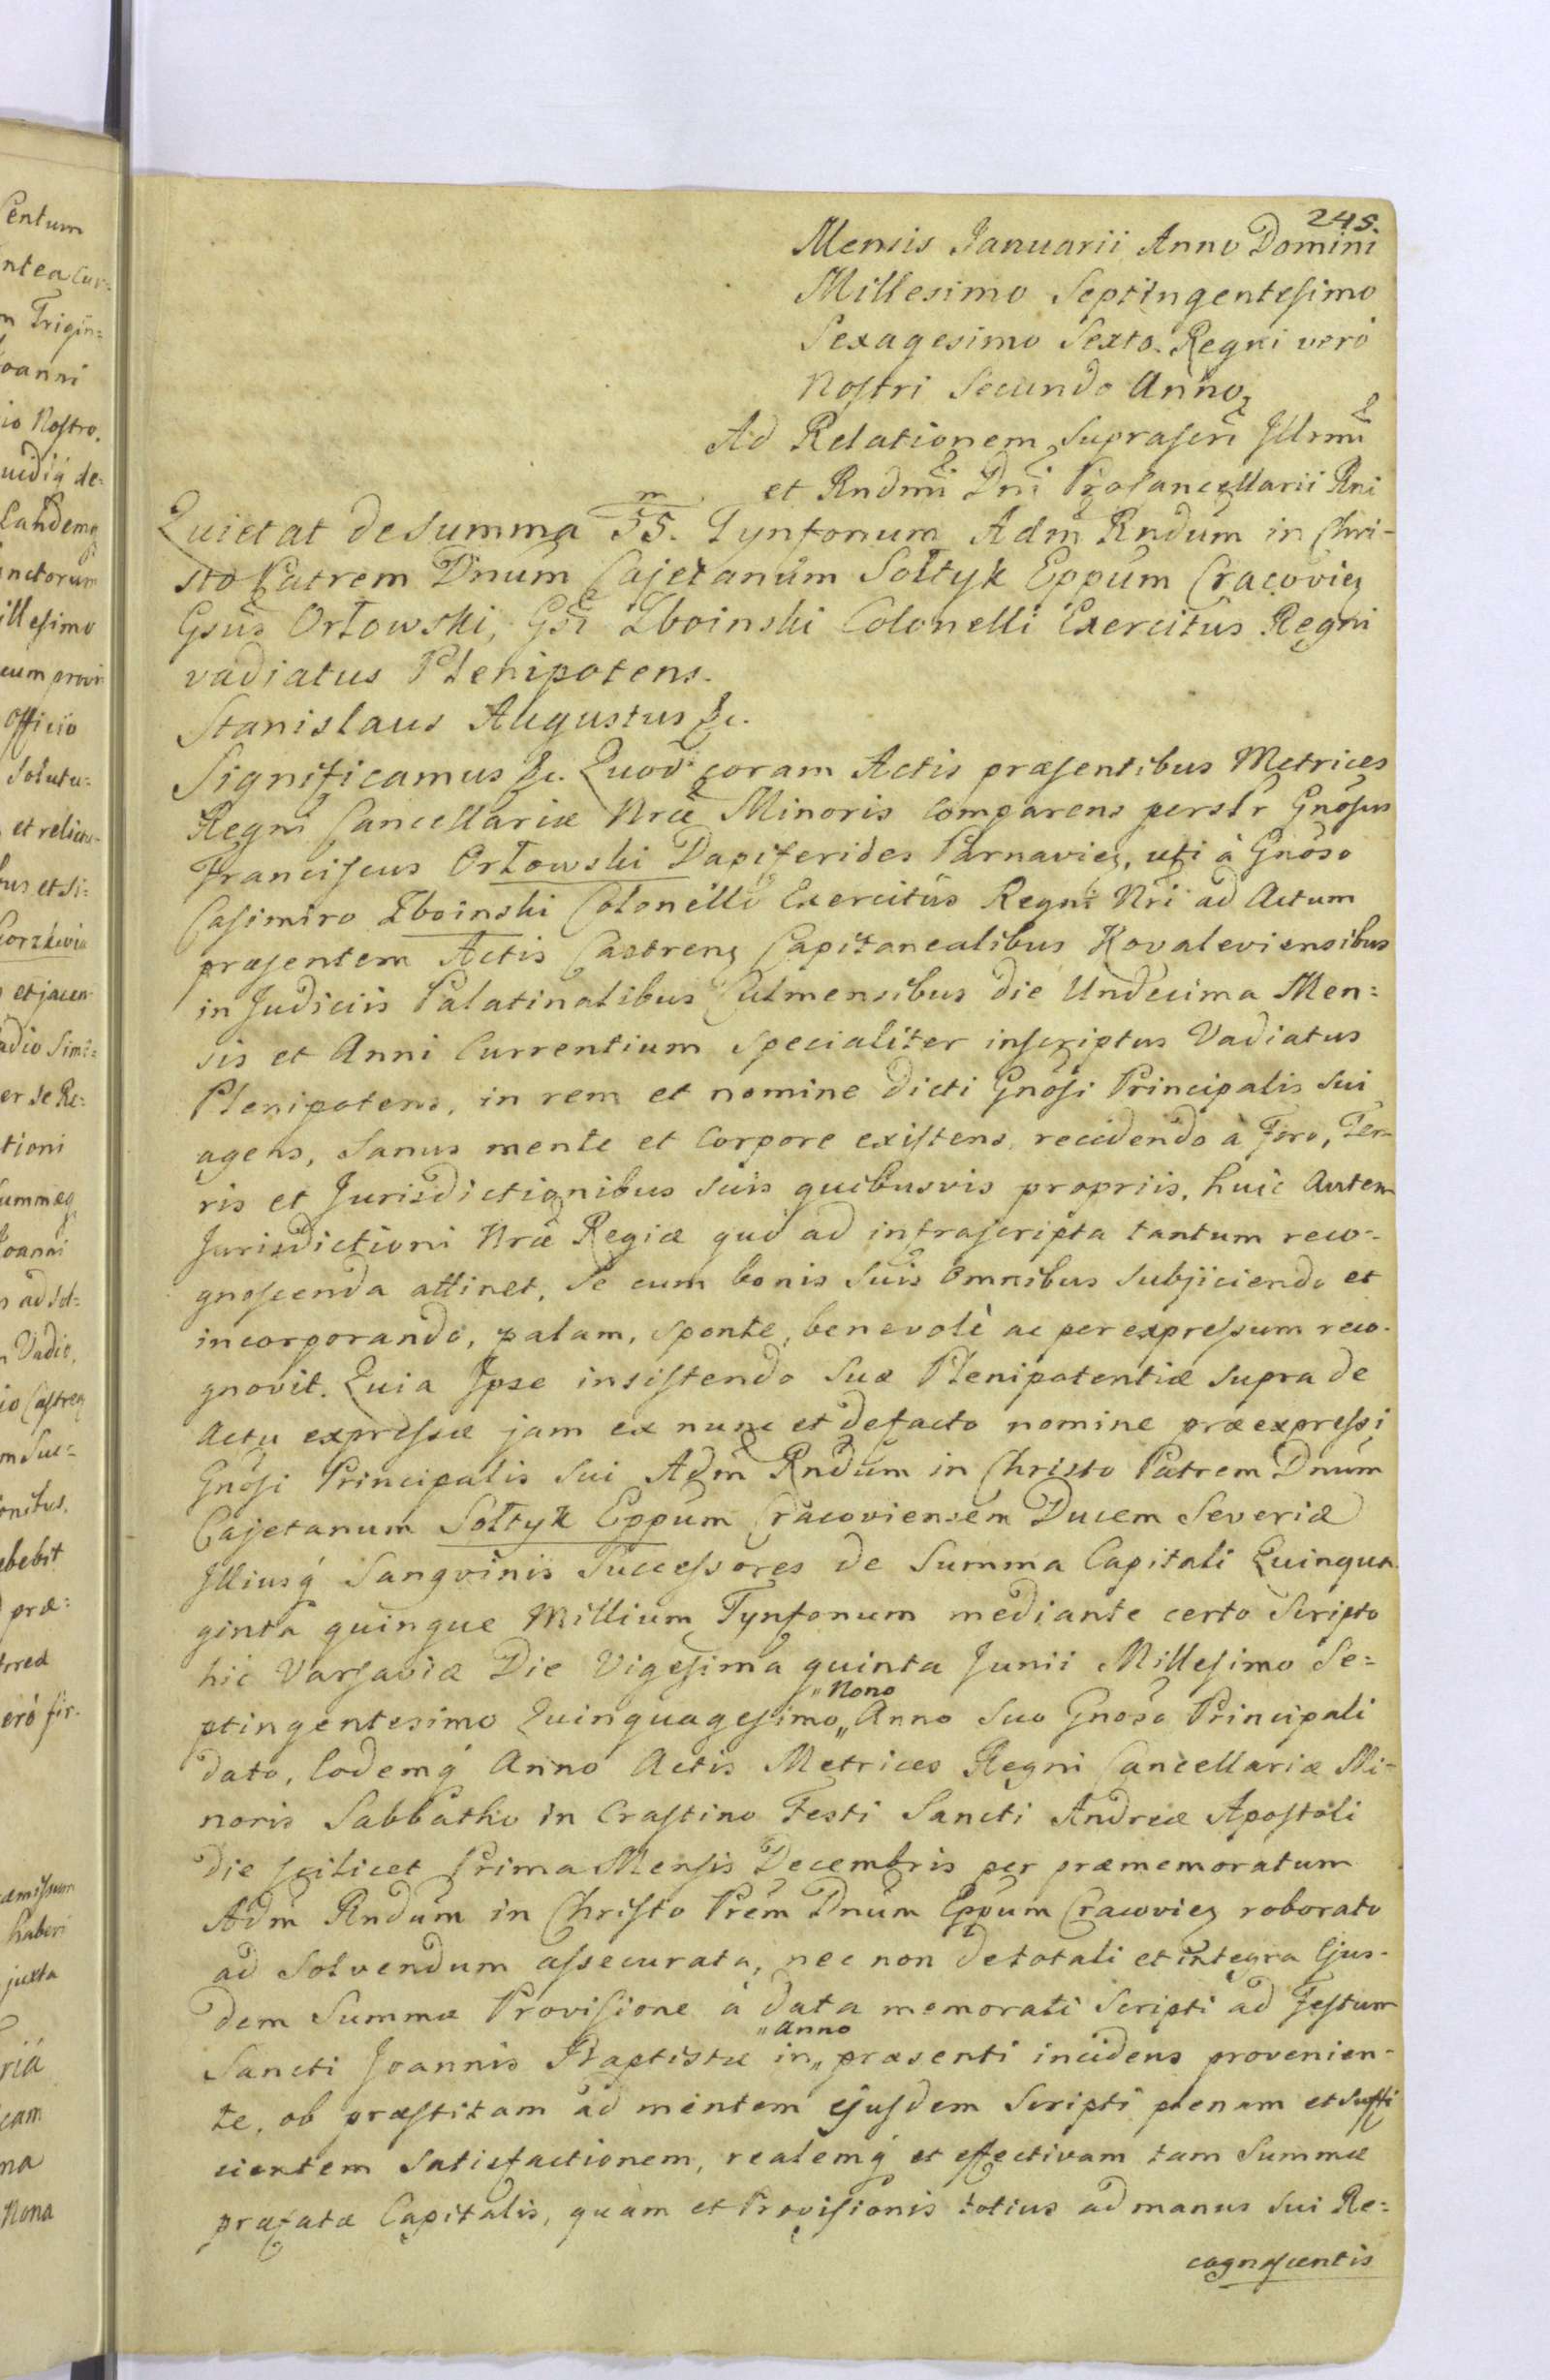 245.
Mensis Januarii Anno Domini
Millesimo Septingentesimo
Sexagesimo Sexto. Regni verò
Nostri Secundo Anno,
Ad Relationem suprascri Illrmi
et Rndmi Dni Procancellarii Rni
Quietat de Summa 55. m Tynfonum Adm Rndum in Chri-
sto Patrem Dnum Cajetanum Sołtyk Eppum Cracovien
Gsus Orłowski, Gsi Zboinski Colonelli Exercitus Regni
vadiatus Plenipotens.
Stanislaus Augustus &c.
Significamus &c. Quod coram Actis præsentibus Metrices
Regni Cancellariæ Nræ Minoris Comparens perslr Gnosus
Franciscus Orłowski Dapiferides Parnavien, uti à Gnoso
Casimiro Zboinski Colonello Exercitûs Regni Nri ad Actum
præsentem Actis Castren Capitanealibus Kovaleviensibus
in Judiciis Palatinalibus Culmensibus die Undecima Men=
sis et Anni Currentium specialiter inscriptus Vadiatus
Plenipotens, in rem et nomine dicti Gnosi Principalis sui
agens, sanus mente et Corpore existens, recedendo à Foro, Ter-
ris et Jurisdictionibus suis quibusvis propriis, huic Autem
Jurisdictioni Nræ Regiæ quo ad infrascripta tantum reco-
gnoscenda attinet, se cum bonis suis omnibus subjiciendo et
incorporando, palam, sponte, benevolè ac per expressum reco-
gnovit. Quia Ipse insistendo suæ Plenipotentiæ supra de
Actu expressæ jam ex nunc et defacto nomine præexpressi
Gnosi Principalis sui Adm Rndum in Christo Patrem Dnum
Cajetanum Sołtyk Eppum Cracoviensem Ducem Severiæ
Illiusq Sangvinis Successores de Summa Capitali Quinqua
ginta quinque Millium Tynfonum mediante certo Scripto
hic Varsaviæ Die Vigesima quinta Junii Millesimo Se=
ptingentesimo Quinquagesimo „Nono„ Anno suo Gnoso Principali
dato, Eodemq Anno Actis Metrices Regni Cancellariæ Mi-
noris Sabbatho in Crastino Festi Sancti Andreæ Apostoli
Die scilicet Prima Mensis Decembris per præmemoratum
Adm Rndum in Christo Prem Dnum Eppum Cracovien roborato
ad Solvendum assecurata, nec non de totali et integra Ejus-
dem Summæ Provisione à data memorati Scripti ad Festum
Sancti Joannis Baptistæ in „Anno„ præsenti incidens provenien-
te, ob præstitam ad mentem ejusdem Scripti plenam et suffi
cientem satisfactionem, realemq et effectivam tam Summæ
præfatæ Capitalis, quàm et Provisionis totius ad manus sui Re=
cognoscentis